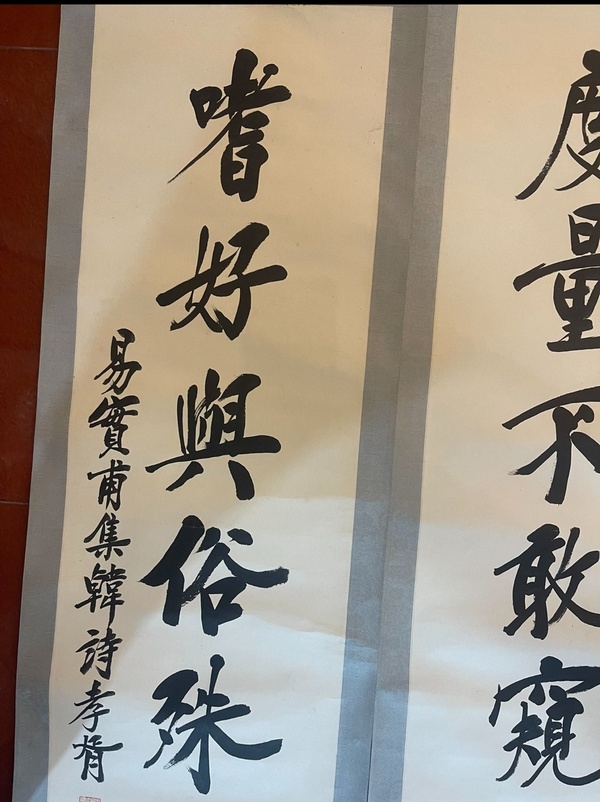 度量不敢窺
嗜好與俗殊
易實甫集韓詩孝胥